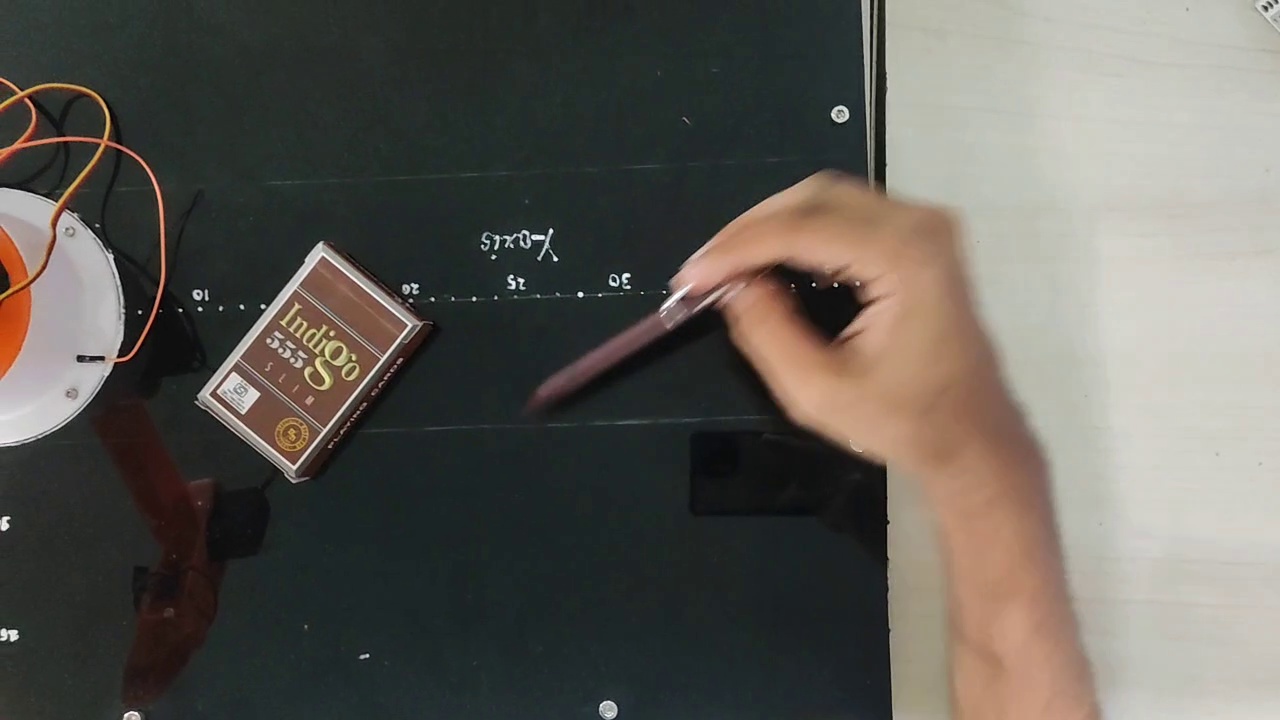 Y-axis
10
20
25
30
Indigo
555
SLIM
PLAYING CARDS